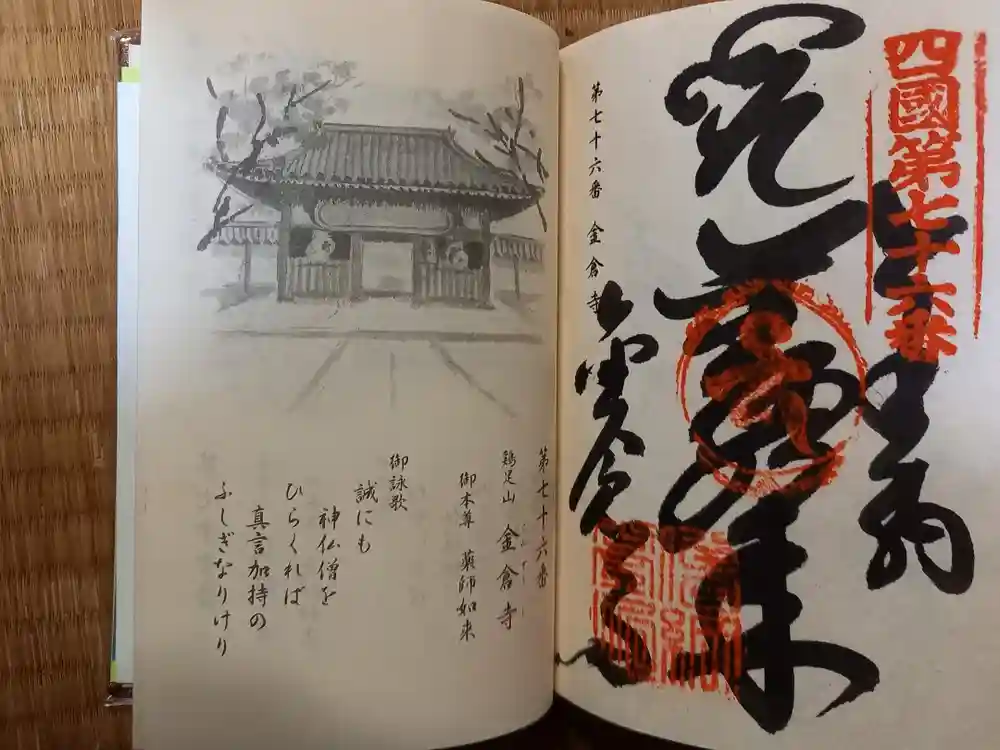 四國第七十六番
奉納
第七十六番 金倉寺
金倉寺
第七十六番
鶏足山 金倉寺
御本尊 薬師如来
御詠歌
誠にも
神仏僧を
ひらくれば
真言加持の
ふしぎなりけり